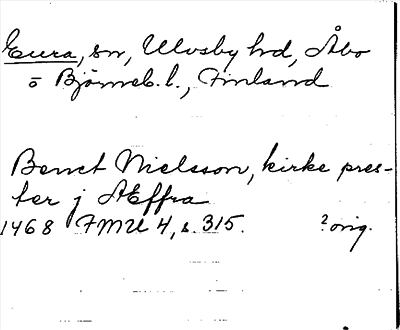 Eura, sn, Ulvsby hd, Åbo
o Björneb. l., Finland
Benct Nielsson, kirke pres-
ter j Æffra
1468 FMU 4, s. 315. ? orig.